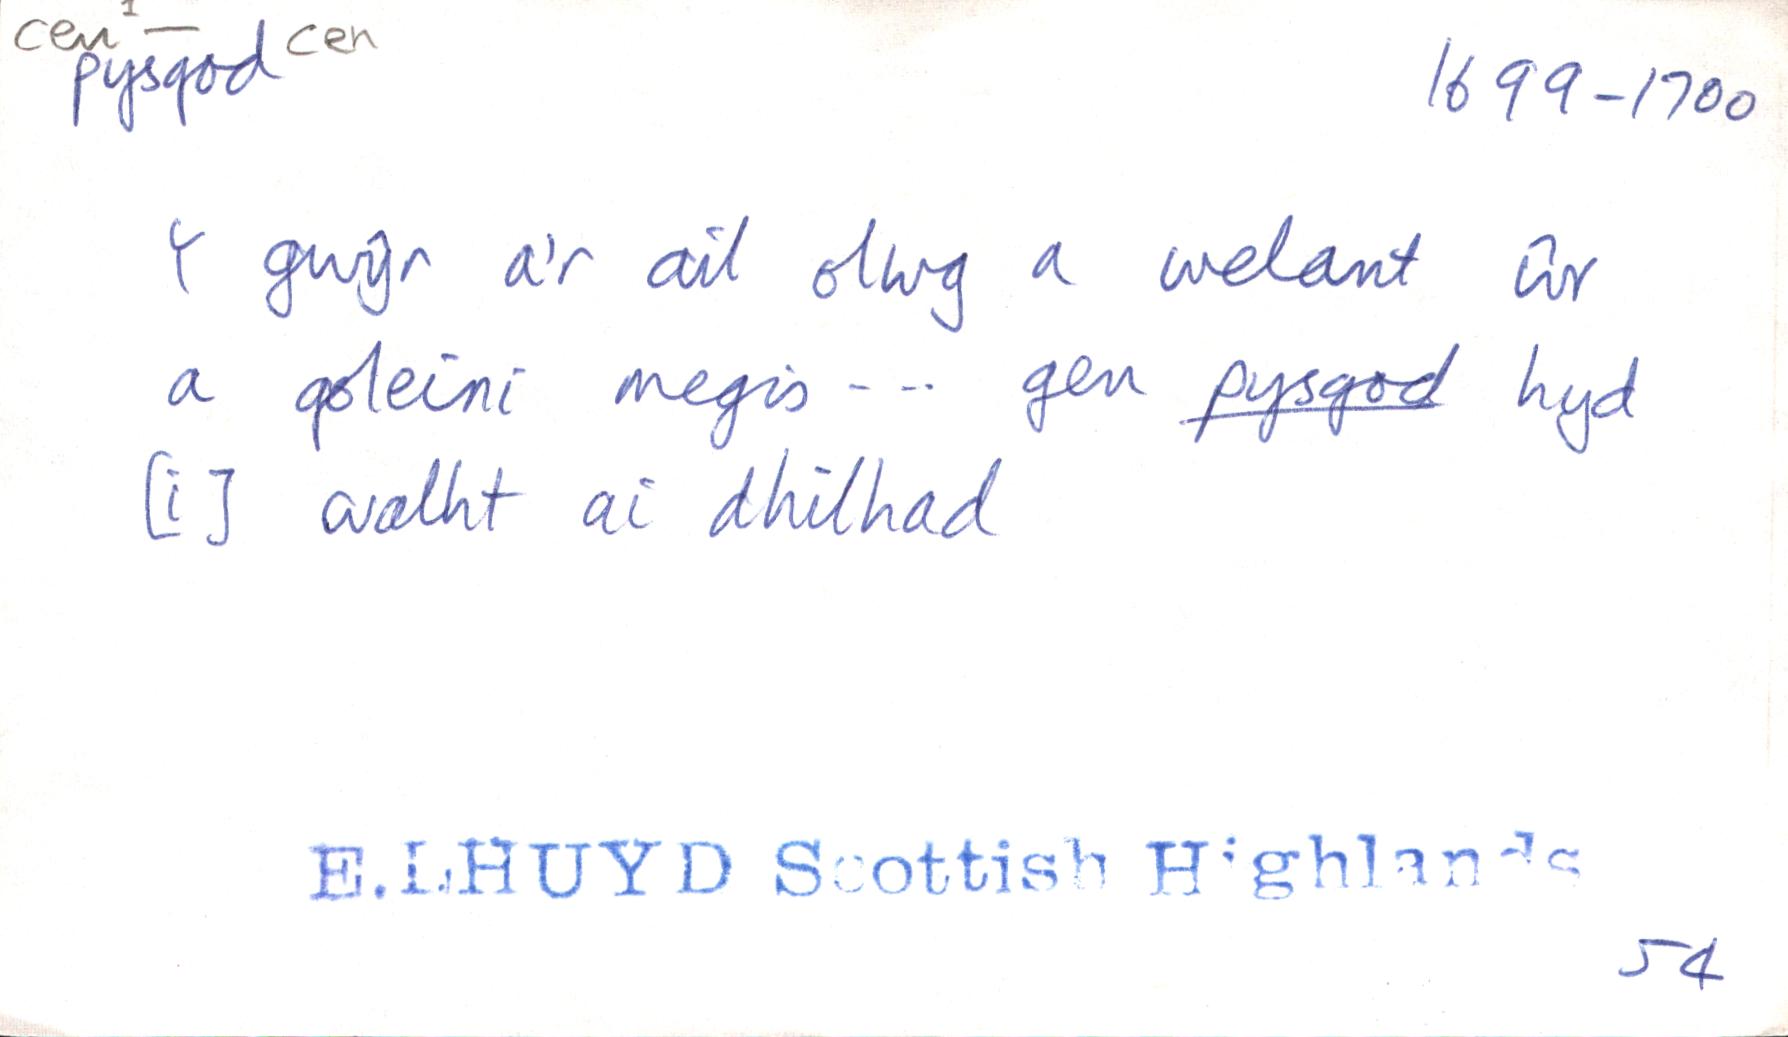 cen¹ — cen
pysgod
1699-1700
Y gwŷr a'r ail olwg a welant ŵr
a goleini megis --- gen pysgod hyd
[i] walht ai dhilhad
E.LHUYD Scottish Highlands
54